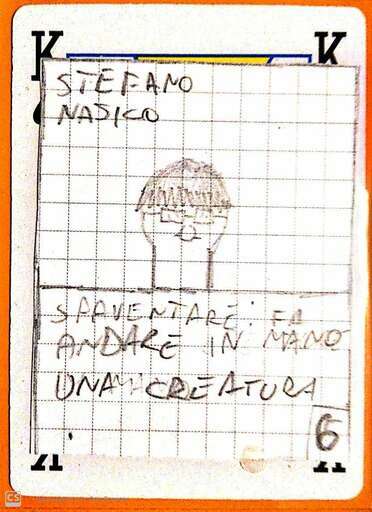 K K
STEFANO
NASICO
SPAVENTARE: FA
ANDARE IN MANO
UNA CREATURA
6
K K
CS